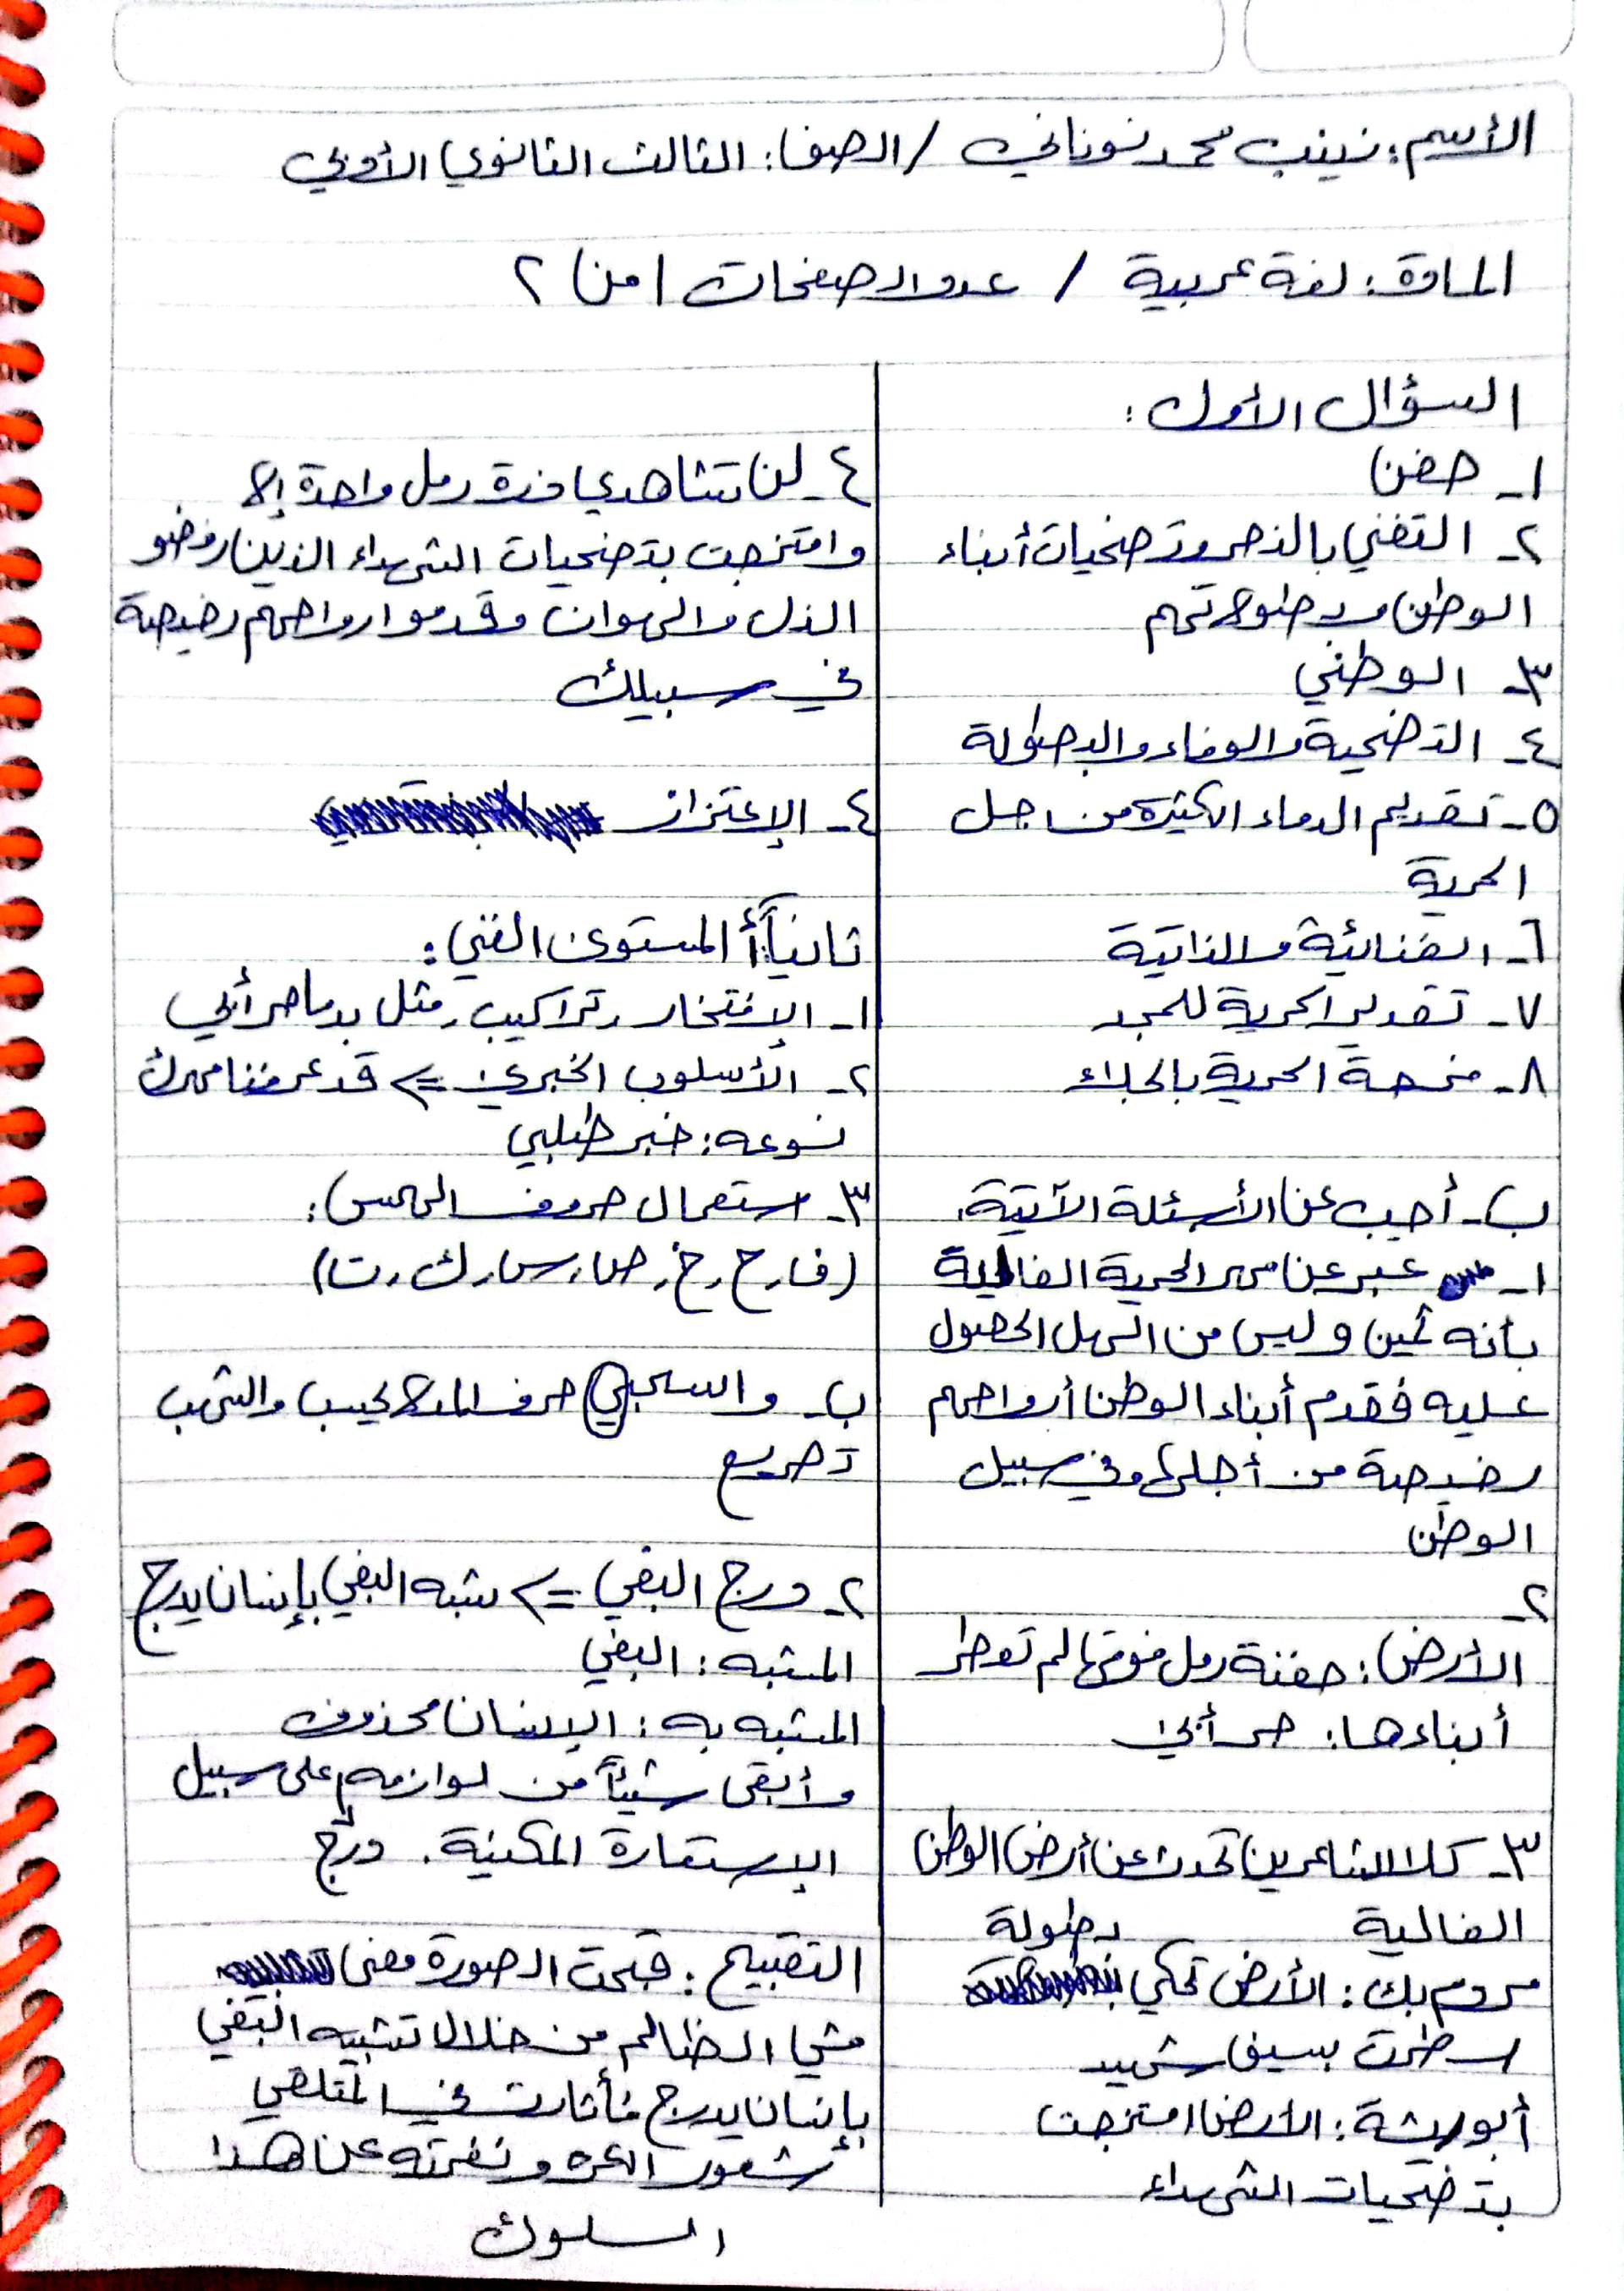 الأسم: زينب محمد نوناني / الصف: الثالث الثانوي الأدبي
المادة: لغة عربية / عدد الصفحات ١ من ٢
السؤال الأول:
١- حفن
٢- التغني بالنصر وتضحيات أبناء
الوطن وبطولاتهم
٣- الوطني
٤- التضحية والوفاء والبطولة
٥- تقديم الدماء الكثيرة من اجل
الحرية
٦- الغنائية والذاتية
٧- تقدير الحرية للمجد
٨- فرحة الحرية بالجلاء
ب- أجب عن الأسئلة الآتية:
١- عبر عن مهر الحرية الغالية
بأنه ثمين وليس من السهل الحصول
عليه فقدم أبناء الوطن أرواحهم
رخيصة من أجلها وفي سبيل
الوطن
٢-
الأرض: حفنة رمل فوقها لم تعطر
أبناءها: حر أبي
٣- كلا الشاعرين تحدث عن أرض الوطن
الغالية
مردم بك: الأرض تحكي بطولة
اسطرت بسيف شهيد
أبو ريشة: الأرض امتزجت
بتضحيات الشهداء
٤- لن تشاهدي ذرة رمل واحدة إلا
وامتزجت بتضحيات الشهداء الذين رفضو
الذل والهوان وقدموا ارواحهم رخيصة
في سبيلك
٤- الإعتزاز
ثانياً: أ المستوى الفني:
١- الإفتخار، تراكيب، مثل بدما حر أبي
٢- الأسلوب الخبري => قد عرفنا مهرك
نوعه: خبر طلبي
٣- استعمال حروف الهمس:
(ف، ح، خ، ص، س، ك، ت)
ب- واسحبي حرف المد لا يحسب والشهب
تصريع
٢- درج البغي => شبه البغي بإنسان يدرج
المشبه: البغي
المشبه به: الإنسان محذوف
وأبقى شيئاً من لوازمه على سبيل
الإستعارة المكنية. درج
التقبيح: قبحت الصورة معنى
مشي الظالم من خلال تشبيه البغي
بإنسان يدرج فأثارت في المتلقي
شعور الكره ونفرته عن هذا
السلوك